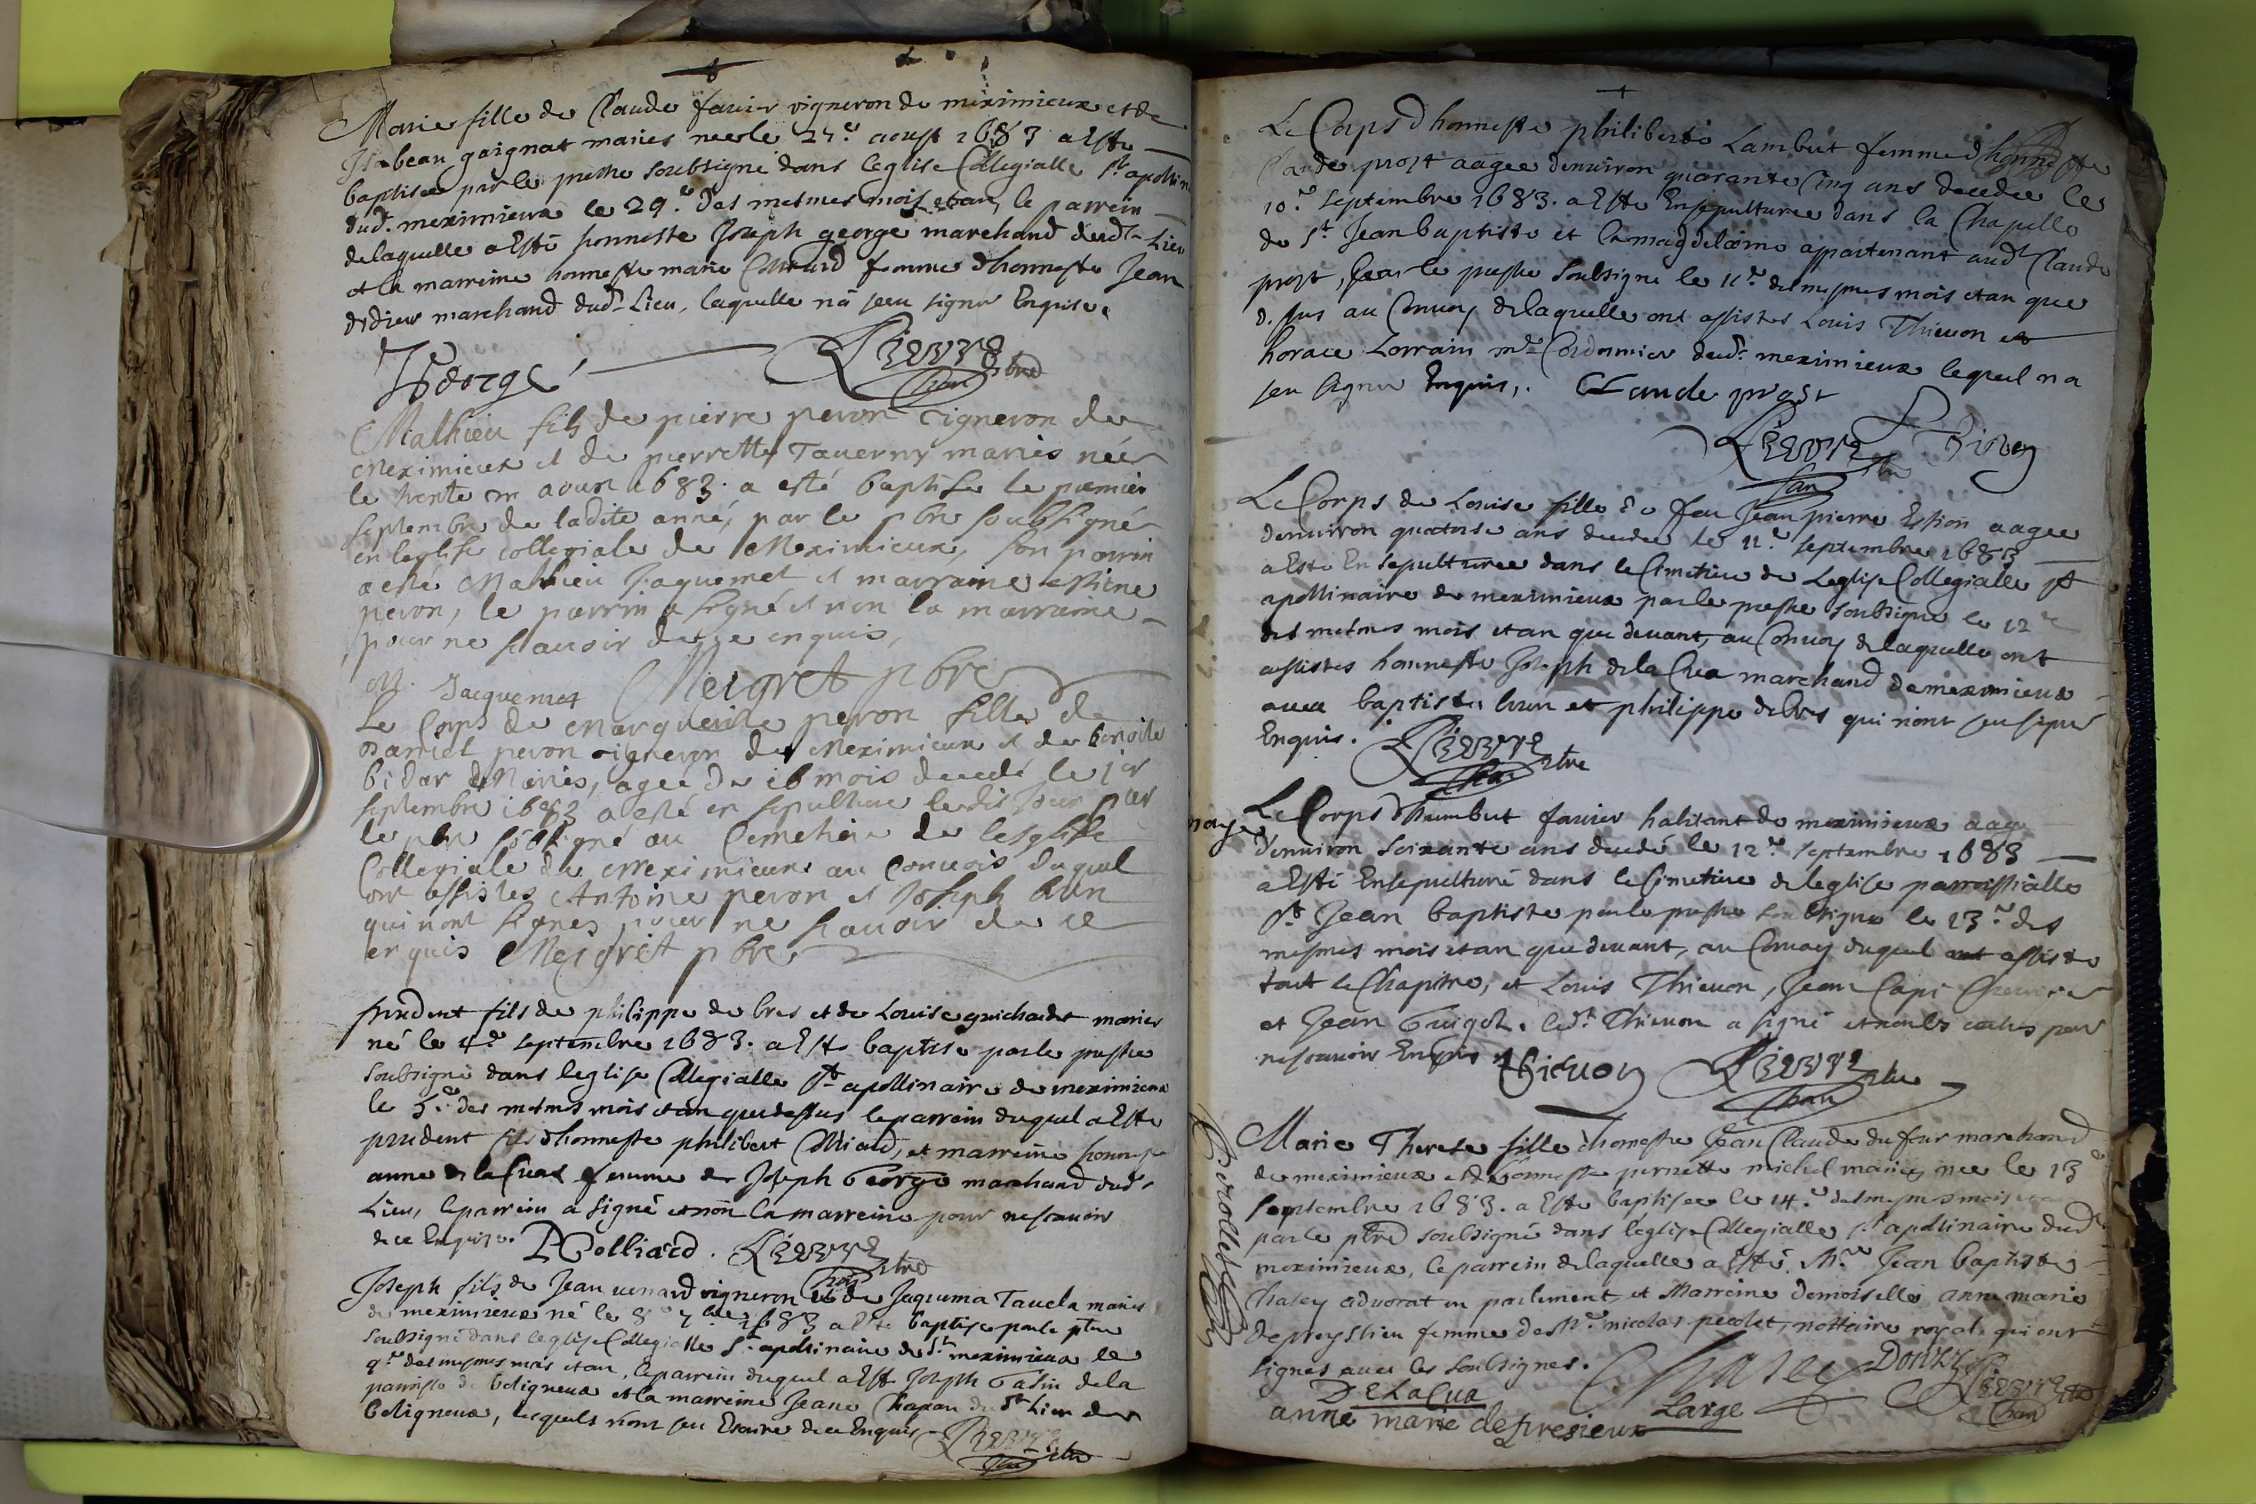 Marie fille de Claude favier vigneron de meximieux et de
Isabeau gaignat maries nee le 27e aoust 1683 a Esté
baptisée par le prestre soubsigné dans leglise Collegialle St apollin
dudt meximieux le 29e des mesmes mois et an, le parrein
de laquelle a Esté honneste Joseph george marchand dudt Lieu
et la marreine honneste marie femme dhonneste Jean
didier marchand dudt Lieu, laquelle na sceu signer Enquise.
JGeorge Lievre pbre
Chan
Mathieu fils de pierre peron vigneron de
Meximieux et de pierrette Taverny mariés née
le trente un aoust 1683. a esté baptise le premier
septembre de ladite anné, par le pbre soubsigné
en leglise collegiale de Meximieux, son parrin
a esté Mathieu Jaquemet et marraine estiene
peron, le parrin a signé et non la marraine
pour ne scavoir de ce enquis,
M. Jacquemet Meigret pbre
Le Corps de Marguerite peron fille de
Daniel peron vigneron de Meximieux et de benoite
bidar Mariés, agee de 18 mois decedé le 1er
septembre 1683 a esté en sepulture ledis jour par
le pbr sobsigné au Cemetiere de lesglise
Collegiale de Meximieux au convois duquel
ont assistes Antoine peron et Joseph brun
qui nont signes pour ne scavoir de ce
enquis Meigret pbre
prudent fils de philippe de bres et de Louise guichardet maries
né le 4e septembre 1683. a Esté baptise par le prestre
soubsigné dans leglise Collegialle St apollinaire de meximieux
le 5e des mesmes mois et an que dessus le parrein duquel a Esté
prudent fils dhonneste philibert Olliard, et marreine honneste
anne de la Cuaz femme de Joseph George marchand dudt
Lieu, le parrein a signé et non la marreine pour ne scavoir
de ce Enquise. POlliard. Lievre pbre
Chan
Joseph fils de Jean venard vigneron et de Jaquema Tavela maries
de meximieux né le 8e 7bre 1683 a Esté baptise par le pbre
soubsigné dans leglise Collegialle St apollinaire de dt meximieux le
9e des mesmes mois et an, le parrein duquel a Esté Joseph de la
parroisse de beligneux et la marreine Jeane Chapan du dt Lieu de
beligneux, lesquels nont sceu Escrire de ce Enquis Lievre pbre
Chan
Le Corps dhonneste philiberte Lambert femme dhonneste
Claude prost aagee denviron quarante Cinq ans decedee le
10e septembre 1683. a Esté Ensepulturee dans la Chapelle
de St Jean baptiste et la magdeleine appartenant audt Claude
prost, par le prestre soubsigné le 11e des mesmes mois et an que
dessus au Convoy de laquelle ont assistes Louis Thievon et
horace Lorrain me Cordonnier dudt meximieux lequel na
sceu signer Enquis,. Claude prost
Lievre pbre Thievon
Chan
Le Corps de Louise fille de feu Jean pierre Estion aagee
denviron quatorse ans decedee le 11e septembre 1683
a Esté Ensepulturee dans le Cimetiere de Leglise Collegialle St
apollinaire de meximieux par le prestre soubsigné le 12e
des mesmes mois et an que devant, au Convoy de laquelle ont
assistes honneste Joseph de la Cua marchand de meximieux
avec baptiste brun et philippe debres qui nont sceu signer
Enquis. Lievre pbre
Chan
Le Corps dhumbert favier habitant de meximieux aagé
denviron soixante ans decedé le 12e septembre 1683
a Esté Ensepulturé dans le Cimetiere de leglise parroissialle
St Jean baptiste par le prestre soubsigné le 13e des
mesmes mois et an que devant, au Convoy duquel ont assisté
tout le Chapitre, et Louis Thievon, Jean Capi
et Jean Guigot. ledt Thievon a signé et non les autres pour
ne scavoir Enquis Thievon Lievre pbre
Chan
Marie Therese fille dhonneste Jean Claude du four marchand
de meximieux et dhonneste pernette michel maries nee le 13e
septembre 1683. a Esté baptisee le 14e des mesmes mois
par le pbre soubsigné dans leglise Collegialle St apollinaire dudt
meximieux, le parrein de laquelle a Esté Mre Jean baptiste
Chaley advocat en parlement, et Marreine demoiselle anne marie
de preyssieu femme de Me nicolas pecolet, nottaire royal, qui ont
signes avec les soubsignes. Chaley Lievre pbre
Chan
DE LaCua
anne marie de presieux Large